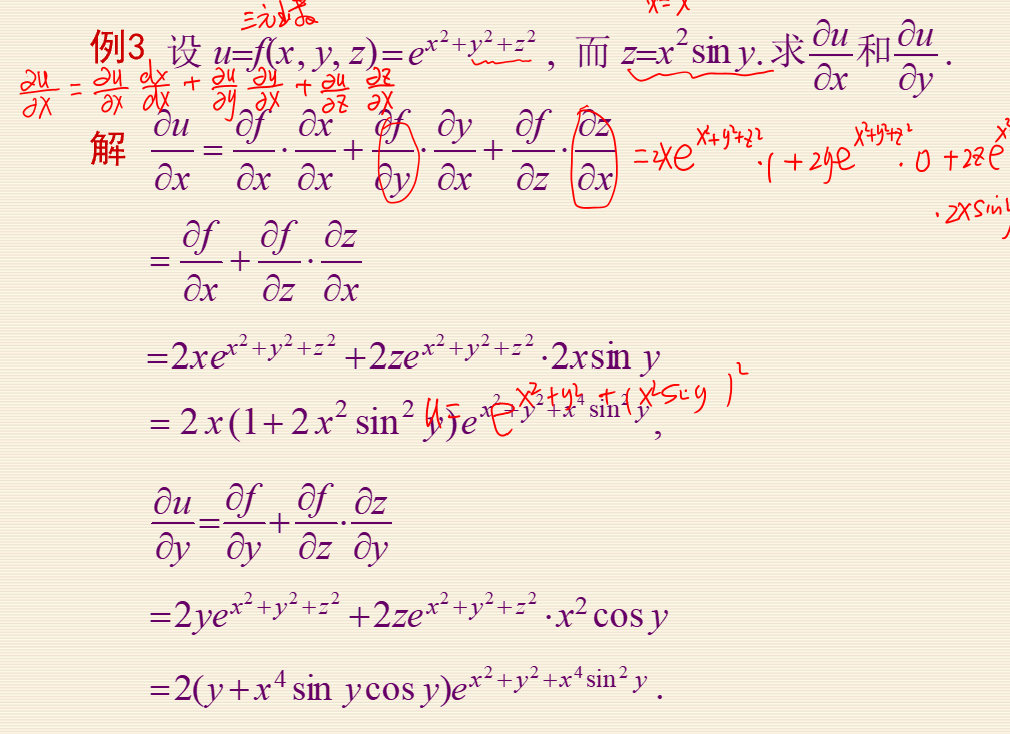 三元函数
x=x
例3 设 u=f(x, y, z)=e^{x²+y²+z²}, 而 z=x² sin y. 求 ∂u/∂x 和 ∂u/∂y .
∂u/∂x = ∂u/∂x dx/dx + ∂u/∂y ∂y/∂x + ∂u/∂z ∂z/∂x
解 ∂u/∂x = ∂f/∂x · ∂x/∂x + ∂f/∂y · ∂y/∂x + ∂f/∂z · ∂z/∂x
=2xe^{x²+y²+z²} · 1 + 2ye^{x²+y²+z²} · 0 + 2ze^{x²
· 2x sin y
= ∂f/∂x + ∂f/∂z · ∂z/∂x
=2xe^{x²+y²+z²} +2ze^{x²+y²+z²} ·2x sin y
u= e^{x²+y²+(x²siy)²}
= 2x(1+2x² sin² y)e^{x²+y²+x⁴ sin² y},
∂u/∂y = ∂f/∂y + ∂f/∂z · ∂z/∂y
=2ye^{x²+y²+z²} +2ze^{x²+y²+z²} ·x² cos y
=2(y+x⁴ sin y cos y)e^{x²+y²+x⁴ sin² y} .